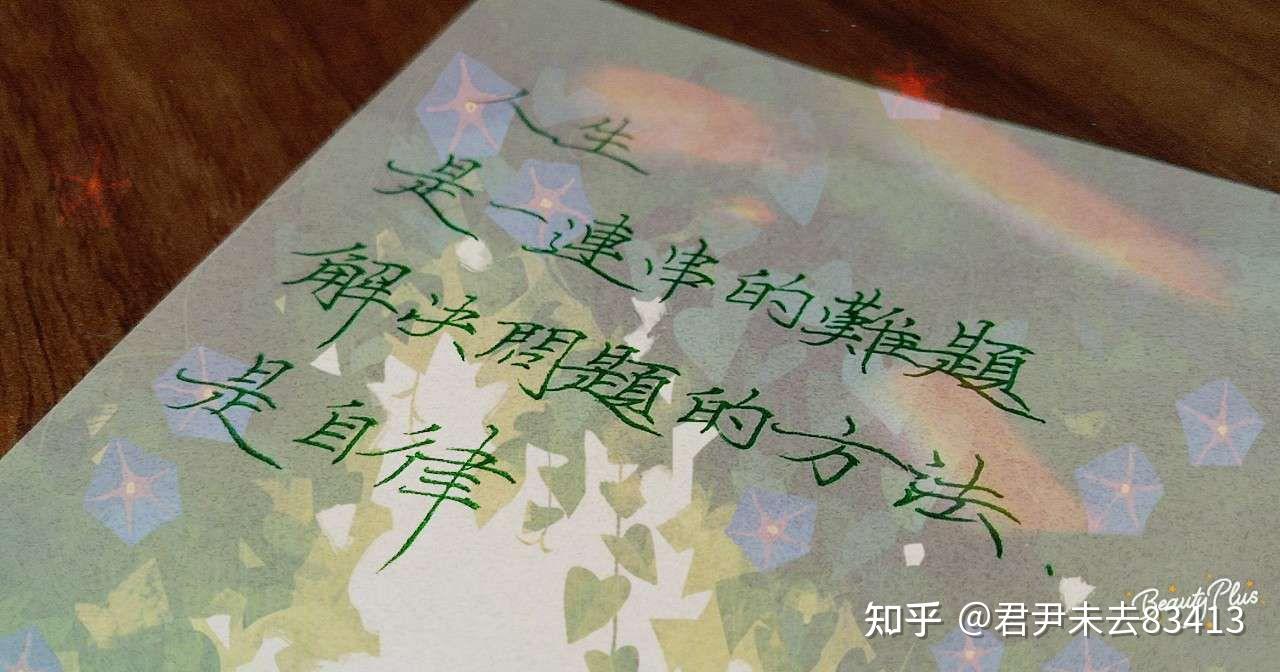 人生
是一連串的難題
解決問題的方法、
是自律
BeautyPlus
知乎 @君尹未去83413